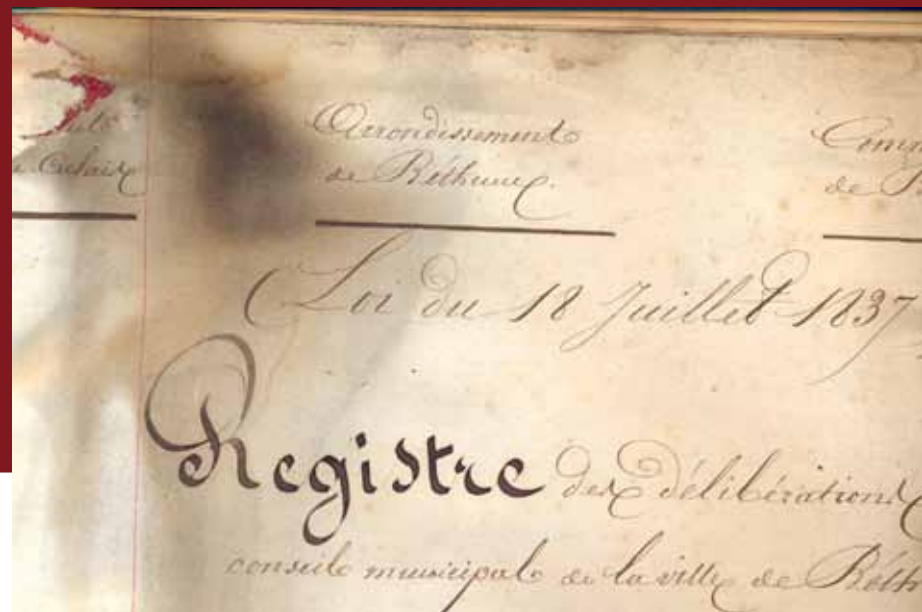 Arrondissement
de Béthune.
Calais
Loi du 18 Juillet 1837
Registre des délibérations
conseil municipal de la ville de Béth